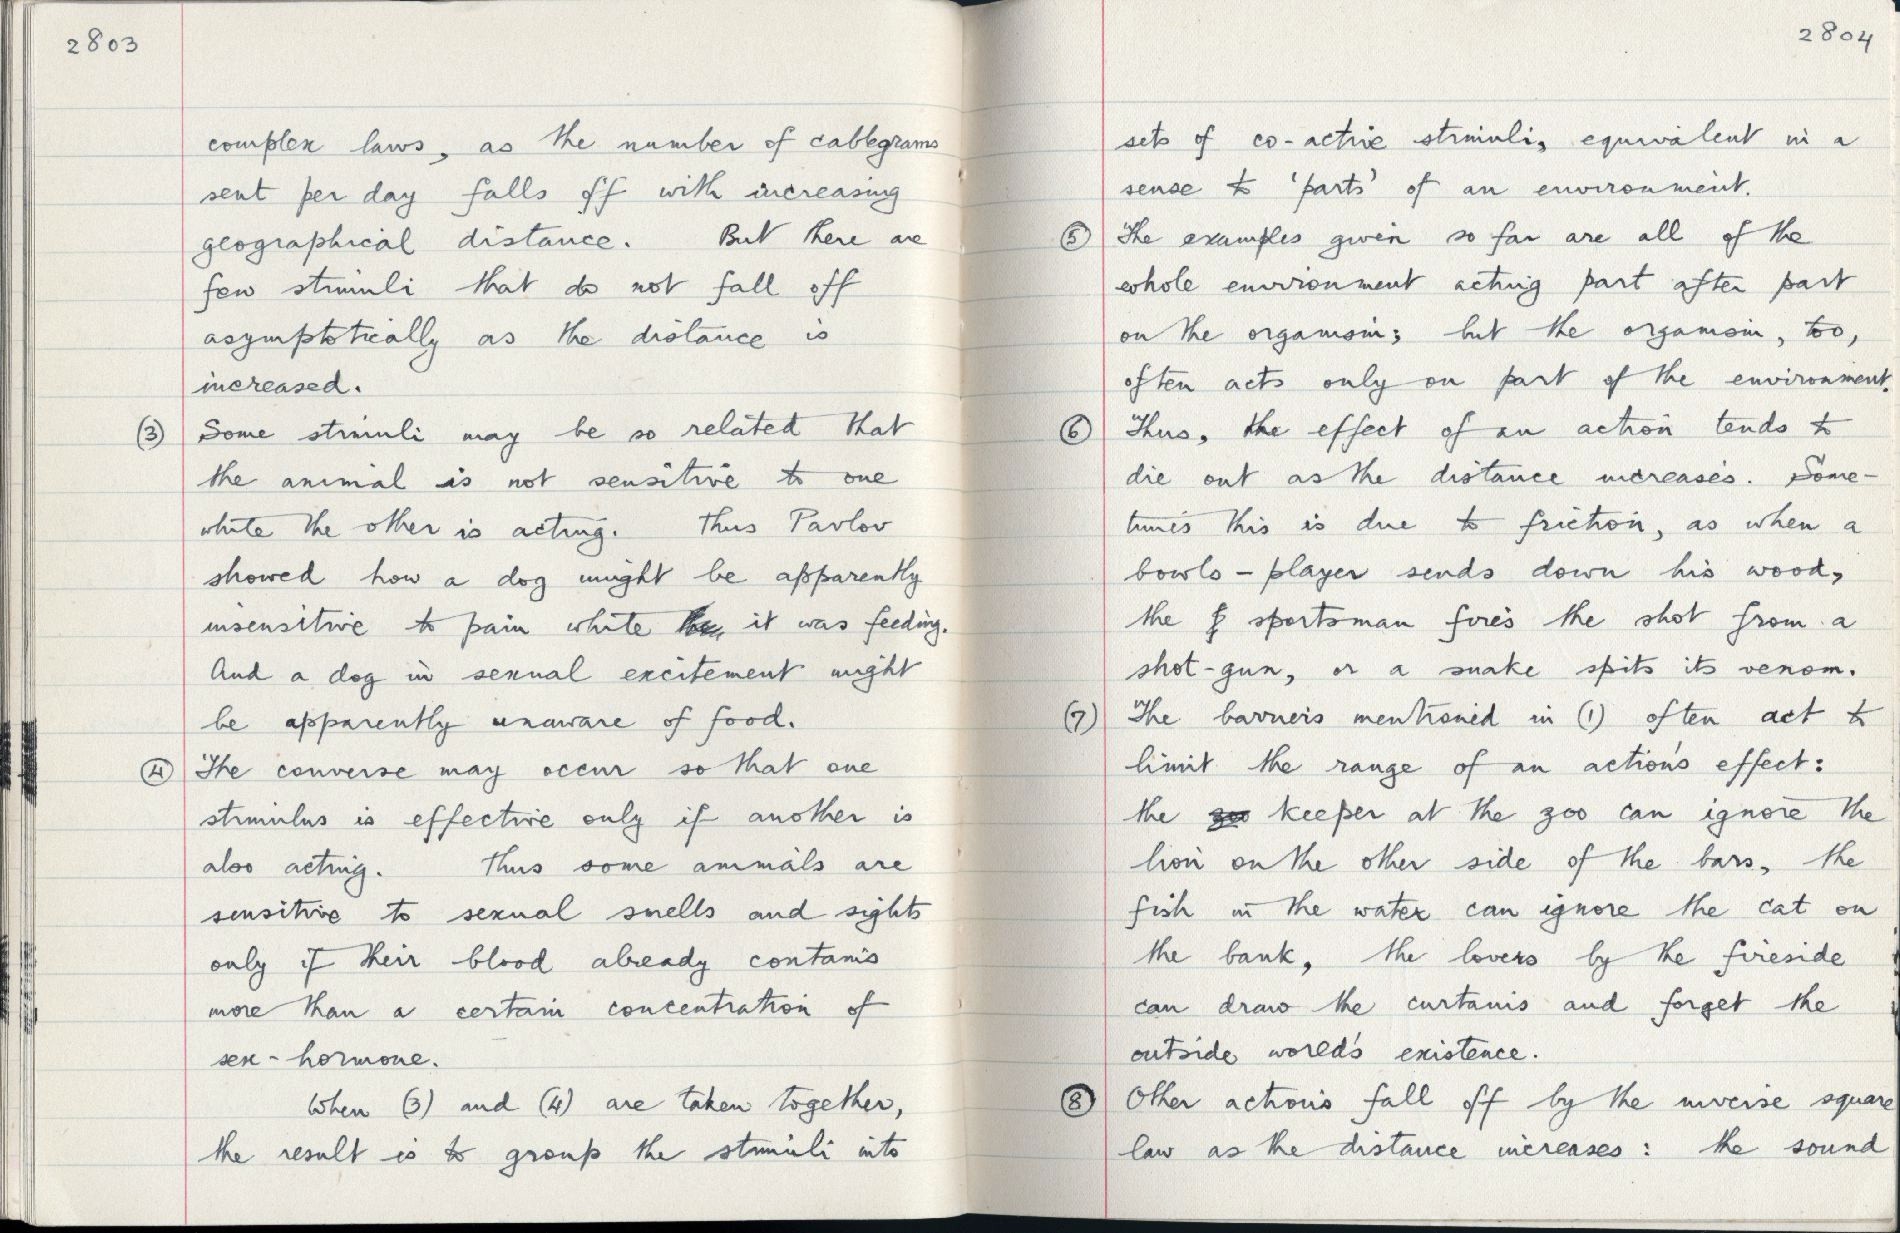 2803
complex laws, as the number of cablegrams
sent per day falls off with increasing
geographical distance. But there are
few stimuli that do not fall off
asymptotically as the distance is
increased.
(3) Some stimuli may be so related that
the animal is not sensitive to one
while the other is acting. Thus Pavlov
showed how a dog might be apparently
insensitive to pain while it was feeding.
And a dog in sexual excitement might
be apparently unaware of food.
(4) The converse may occur so that one
stimulus is effective only if another is
also acting. Thus some animals are
sensitive to sexual smells and sights
only if their blood already contains
more than a certain concentration of
sex-hormone.
When (3) and (4) are taken together,
the result is to group the stimuli into
2804
sets of co-active stimuli, equivalent in a
sense to 'parts' of an environment.
(5) The examples given so far are all of the
whole environment acting part after part
on the organism; but the organism, too,
often acts only on part of the environment.
(6) Thus, the effect of an action tends to
die out as the distance increases. Some-
times this is due to friction, as when a
bowls-player sends down his wood,
the sportsman fires the shot from a
shot-gun, or a snake spits its venom.
(7) The barriers mentioned in (1) often act to
limit the range of an action's effect:
the zoo keeper at the zoo can ignore the
lion on the other side of the bars, the
fish in the water can ignore the cat on
the bank, the lovers by the fireside
can draw the curtains and forget the
outside world's existence.
(8) Other actions fall off by the inverse square
law as the distance increases: the sound